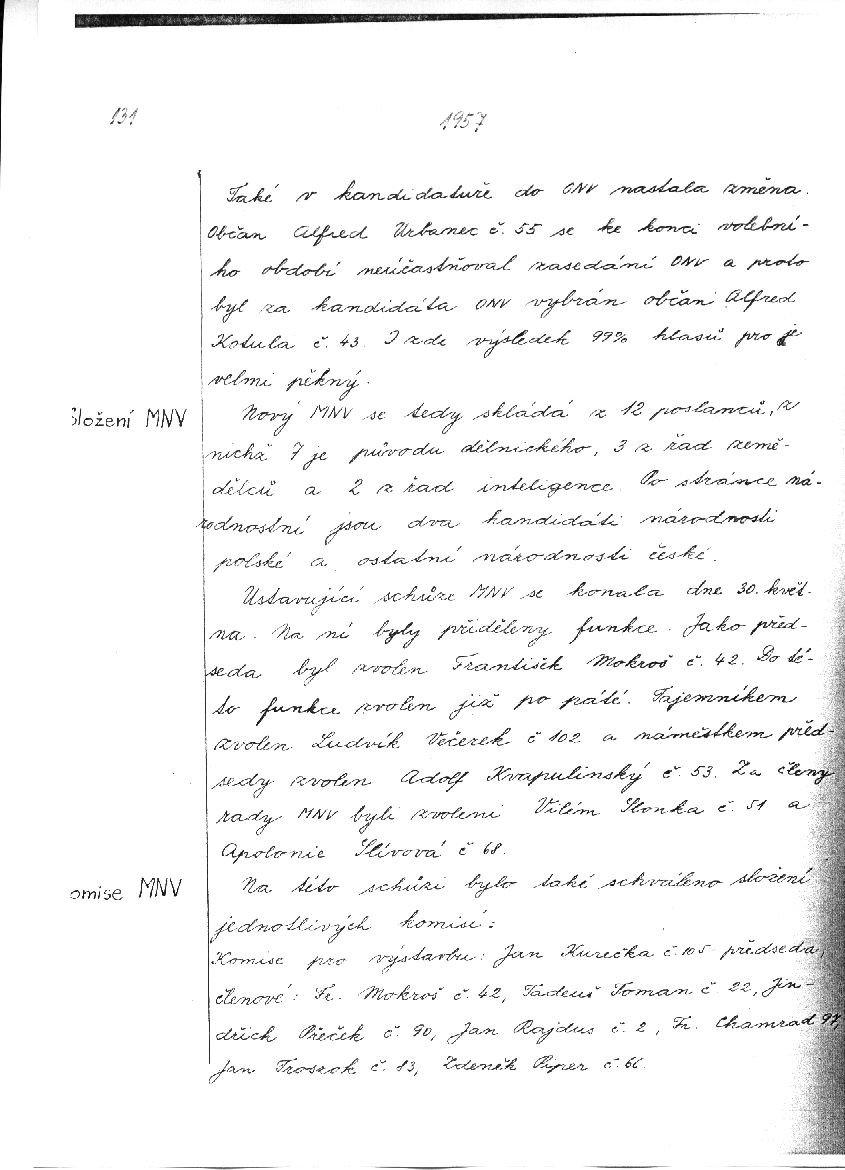 131
1957
Také v kandidatuře do ONV nastala změna.
Občan Alfred Urbanec č. 55 se ke konci volební-
ho období neúčastňoval zasedání ONV a proto
byl za kandidáta ONV vybrán občan Alfred
Kotula č. 43. I zde výsledek 99% hlasů pro je
velmi pěkný.
Složení MNV
Nový MNV se tedy skládá z 12 poslanců, z
nichž 7 je původu dělnického, 3 z řad země-
dělců a 2 z řad inteligence. Po stránce ná-
rodnostní jsou dva kandidáti národnosti
polské a ostatní národnosti české.
Ustavující schůze MNV se konala dne 30. květ-
na. Na ní byly přiděleny funkce. Jako před-
seda byl zvolen František Mokroš č. 42. Do té-
to funkce zvolen již po páté. Tajemníkem
zvolen Ludvík Večerek č 102 a náměstkem před-
sedy zvolen Adolf Kvapulinský č. 53. Za členy
rady MNV byli zvoleni Vilém Slonka č. 51 a
Apolonie Slívová č 68.
omise MNV
Na této schůzi bylo také schváleno složení
jednotlivých komisí:
Komise pro výstavbu: Jan Kurečka č. 105 předseda,
členové: Fr. Mokroš č. 42, Tadeuš Toman č. 22, Jin-
dřich Přeček č. 90, Jan Rajdus č. 2, Fr. Chamrad 97,
Jan Troszok č. 13, Zdeněk Piper č. 66.